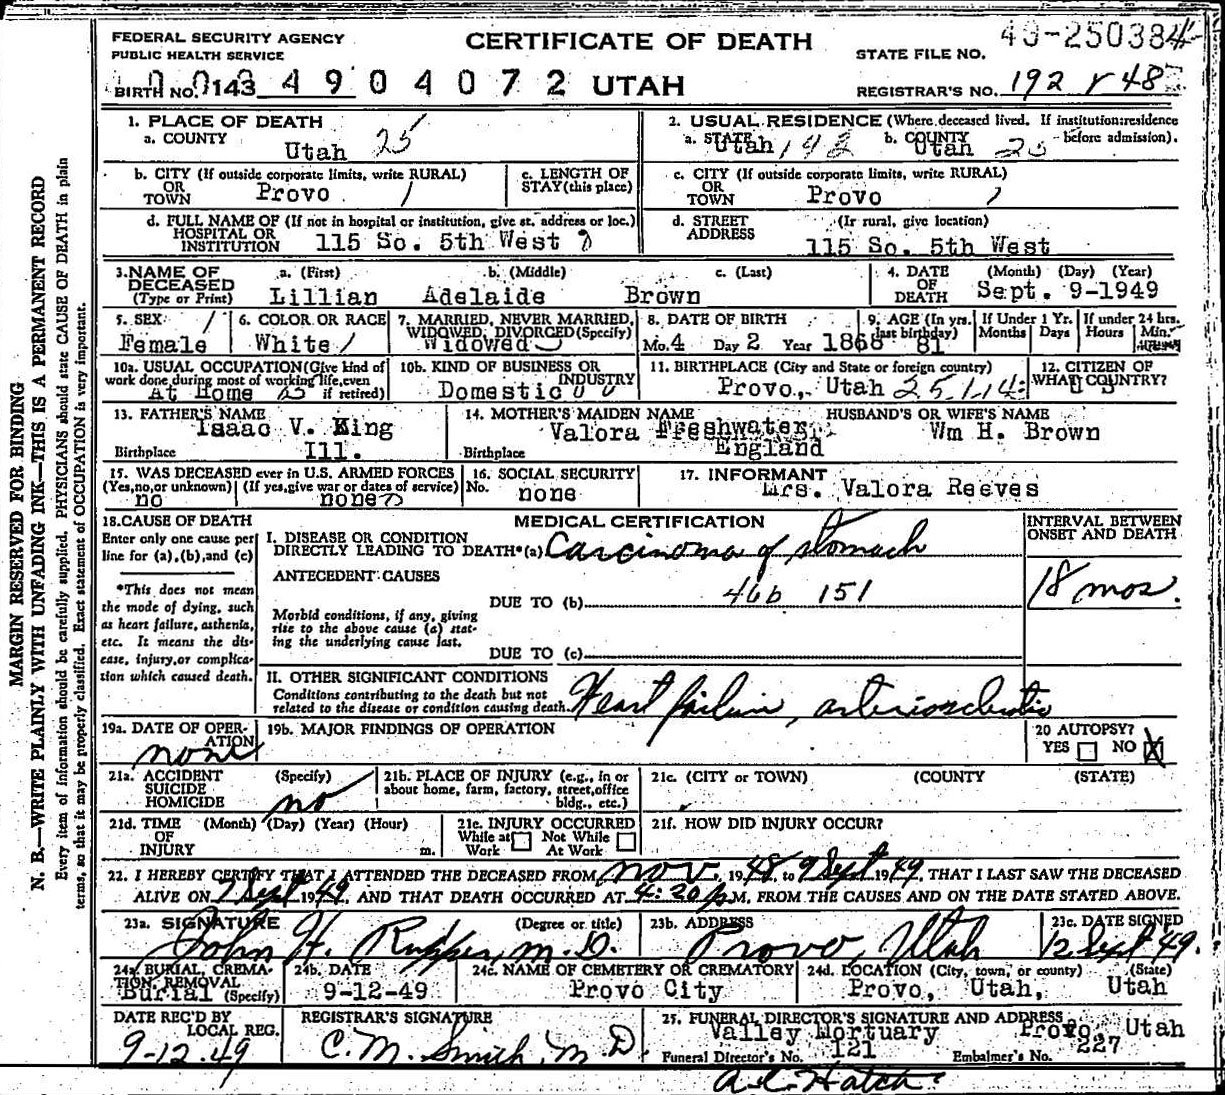 FEDERAL SECURITY AGENCY
PUBLIC HEALTH SERVICE
CERTIFICATE OF DEATH
STATE FILE NO. 49-250384
BIRTH NO. 143 4904072 UTAH
REGISTRAR'S NO. 192 r 48
1. PLACE OF DEATH
a. COUNTY
Utah 25
2. USUAL RESIDENCE (Where deceased lived. If institution:residence before admission).
a. STATE Utah b. COUNTY Utah 25
b. CITY (If outside corporate limits, write RURAL)
OR
TOWN Provo 1
c. LENGTH OF
STAY (this place)
c. CITY (If outside corporate limits, write RURAL)
OR
TOWN Provo
d. FULL NAME OF (If not in hospital or institution, give st. address or loc.)
HOSPITAL OR
INSTITUTION 115 So. 5th West
d. STREET (If rural, give location)
ADDRESS
115 So. 5th West
3. NAME OF DECEASED
(Type or Print)
a. (First) b. (Middle) c. (Last)
Lillian Adelaide Brown
4. DATE OF DEATH (Month) (Day) (Year)
Sept. 9-1949
5. SEX
Female
6. COLOR OR RACE
White
7. MARRIED, NEVER MARRIED,
WIDOWED, DIVORCED (Specify)
Widowed
8. DATE OF BIRTH
Mo. 4 Day 2 Year 1868
9. AGE (In yrs. last birthday)
81
If Under 1 Yr.
Months Days
If under 24 hrs.
Hours Min.
10a. USUAL OCCUPATION (Give kind of
work done during most of working life, even
if retired)
At Home
10b. KIND OF BUSINESS OR
INDUSTRY
Domestic
11. BIRTHPLACE (City and State or foreign country)
Provo, Utah
12. CITIZEN OF
WHAT COUNTRY?
U S
13. FATHER'S NAME
Isaac V. King
Birthplace Ill.
14. MOTHER'S MAIDEN NAME
Valora Freshwater
Birthplace England
HUSBAND'S OR WIFE'S NAME
Wm H. Brown
15. WAS DECEASED ever in U.S. ARMED FORCES
(Yes, no, or unknown) (If yes, give war or dates of service)
no none
16. SOCIAL SECURITY
No. none
17. INFORMANT
Mrs. Valora Reeves
18. CAUSE OF DEATH
Enter only one cause per
line for (a), (b), and (c)
*This does not mean
the mode of dying, such
as heart failure, asthenia,
etc. It means the dis-
ease, injury, or complica-
tion which caused death.
MEDICAL CERTIFICATION
I. DISEASE OR CONDITION
DIRECTLY LEADING TO DEATH*(a) Carcinoma of stomach
ANTECEDENT CAUSES
46b 151
DUE TO (b)
Morbid conditions, if any, giving
rise to the above cause (a) stat-
ing the underlying cause last.
DUE TO (c)
INTERVAL BETWEEN
ONSET AND DEATH
18 mos.
II. OTHER SIGNIFICANT CONDITIONS
Conditions contributing to the death but not
related to the disease or condition causing death.
Heart failure, arteriosclerotic
19a. DATE OF OPER-
ATION
none
19b. MAJOR FINDINGS OF OPERATION
20 AUTOPSY?
YES NO X
21a. ACCIDENT
SUICIDE
HOMICIDE
(Specify)
no
21b. PLACE OF INJURY (e.g., in or
about home, farm, factory, street, office
bldg., etc.)
21c. (CITY or TOWN) (COUNTY) (STATE)
21d. TIME (Month) (Day) (Year) (Hour)
OF
INJURY m.
21e. INJURY OCCURRED
While at Work Not While At Work
21f. HOW DID INJURY OCCUR?
22. I HEREBY CERTIFY THAT I ATTENDED THE DECEASED FROM Nov, 1948, to 9 Sept 1949, THAT I LAST SAW THE DECEASED
ALIVE ON 7 Sept 1949, AND THAT DEATH OCCURRED AT 4:20 P.M, FROM THE CAUSES AND ON THE DATE STATED ABOVE.
23a. SIGNATURE (Degree or title)
John H. Rupper, M.D.
23b. ADDRESS
Provo, Utah
23c. DATE SIGNED
12 Sept 49.
24a. BURIAL, CREMA-
TION, REMOVAL
Burial (Specify)
24b. DATE
9-12-49
24c. NAME OF CEMETERY OR CREMATORY
Provo City
24d. LOCATION (City, town, or county) (State)
Provo, Utah, Utah
DATE REC'D BY
LOCAL REG.
9-12-49
REGISTRAR'S SIGNATURE
C. M. Smith, M.D.
25. FUNERAL DIRECTOR'S SIGNATURE AND ADDRESS
Valley Mortuary Provo, Utah
Funeral Director's No. 121 Embalmer's No. 227
A. L. Hatch
MARGIN RESERVED FOR BINDING
N. B.—WRITE PLAINLY WITH UNFADING INK—THIS IS A PERMANENT RECORD
Every item of information should be carefully supplied. PHYSICIANS should state CAUSE OF DEATH in plain
terms, so that it may be properly classified. Exact statement of OCCUPATION is very important.